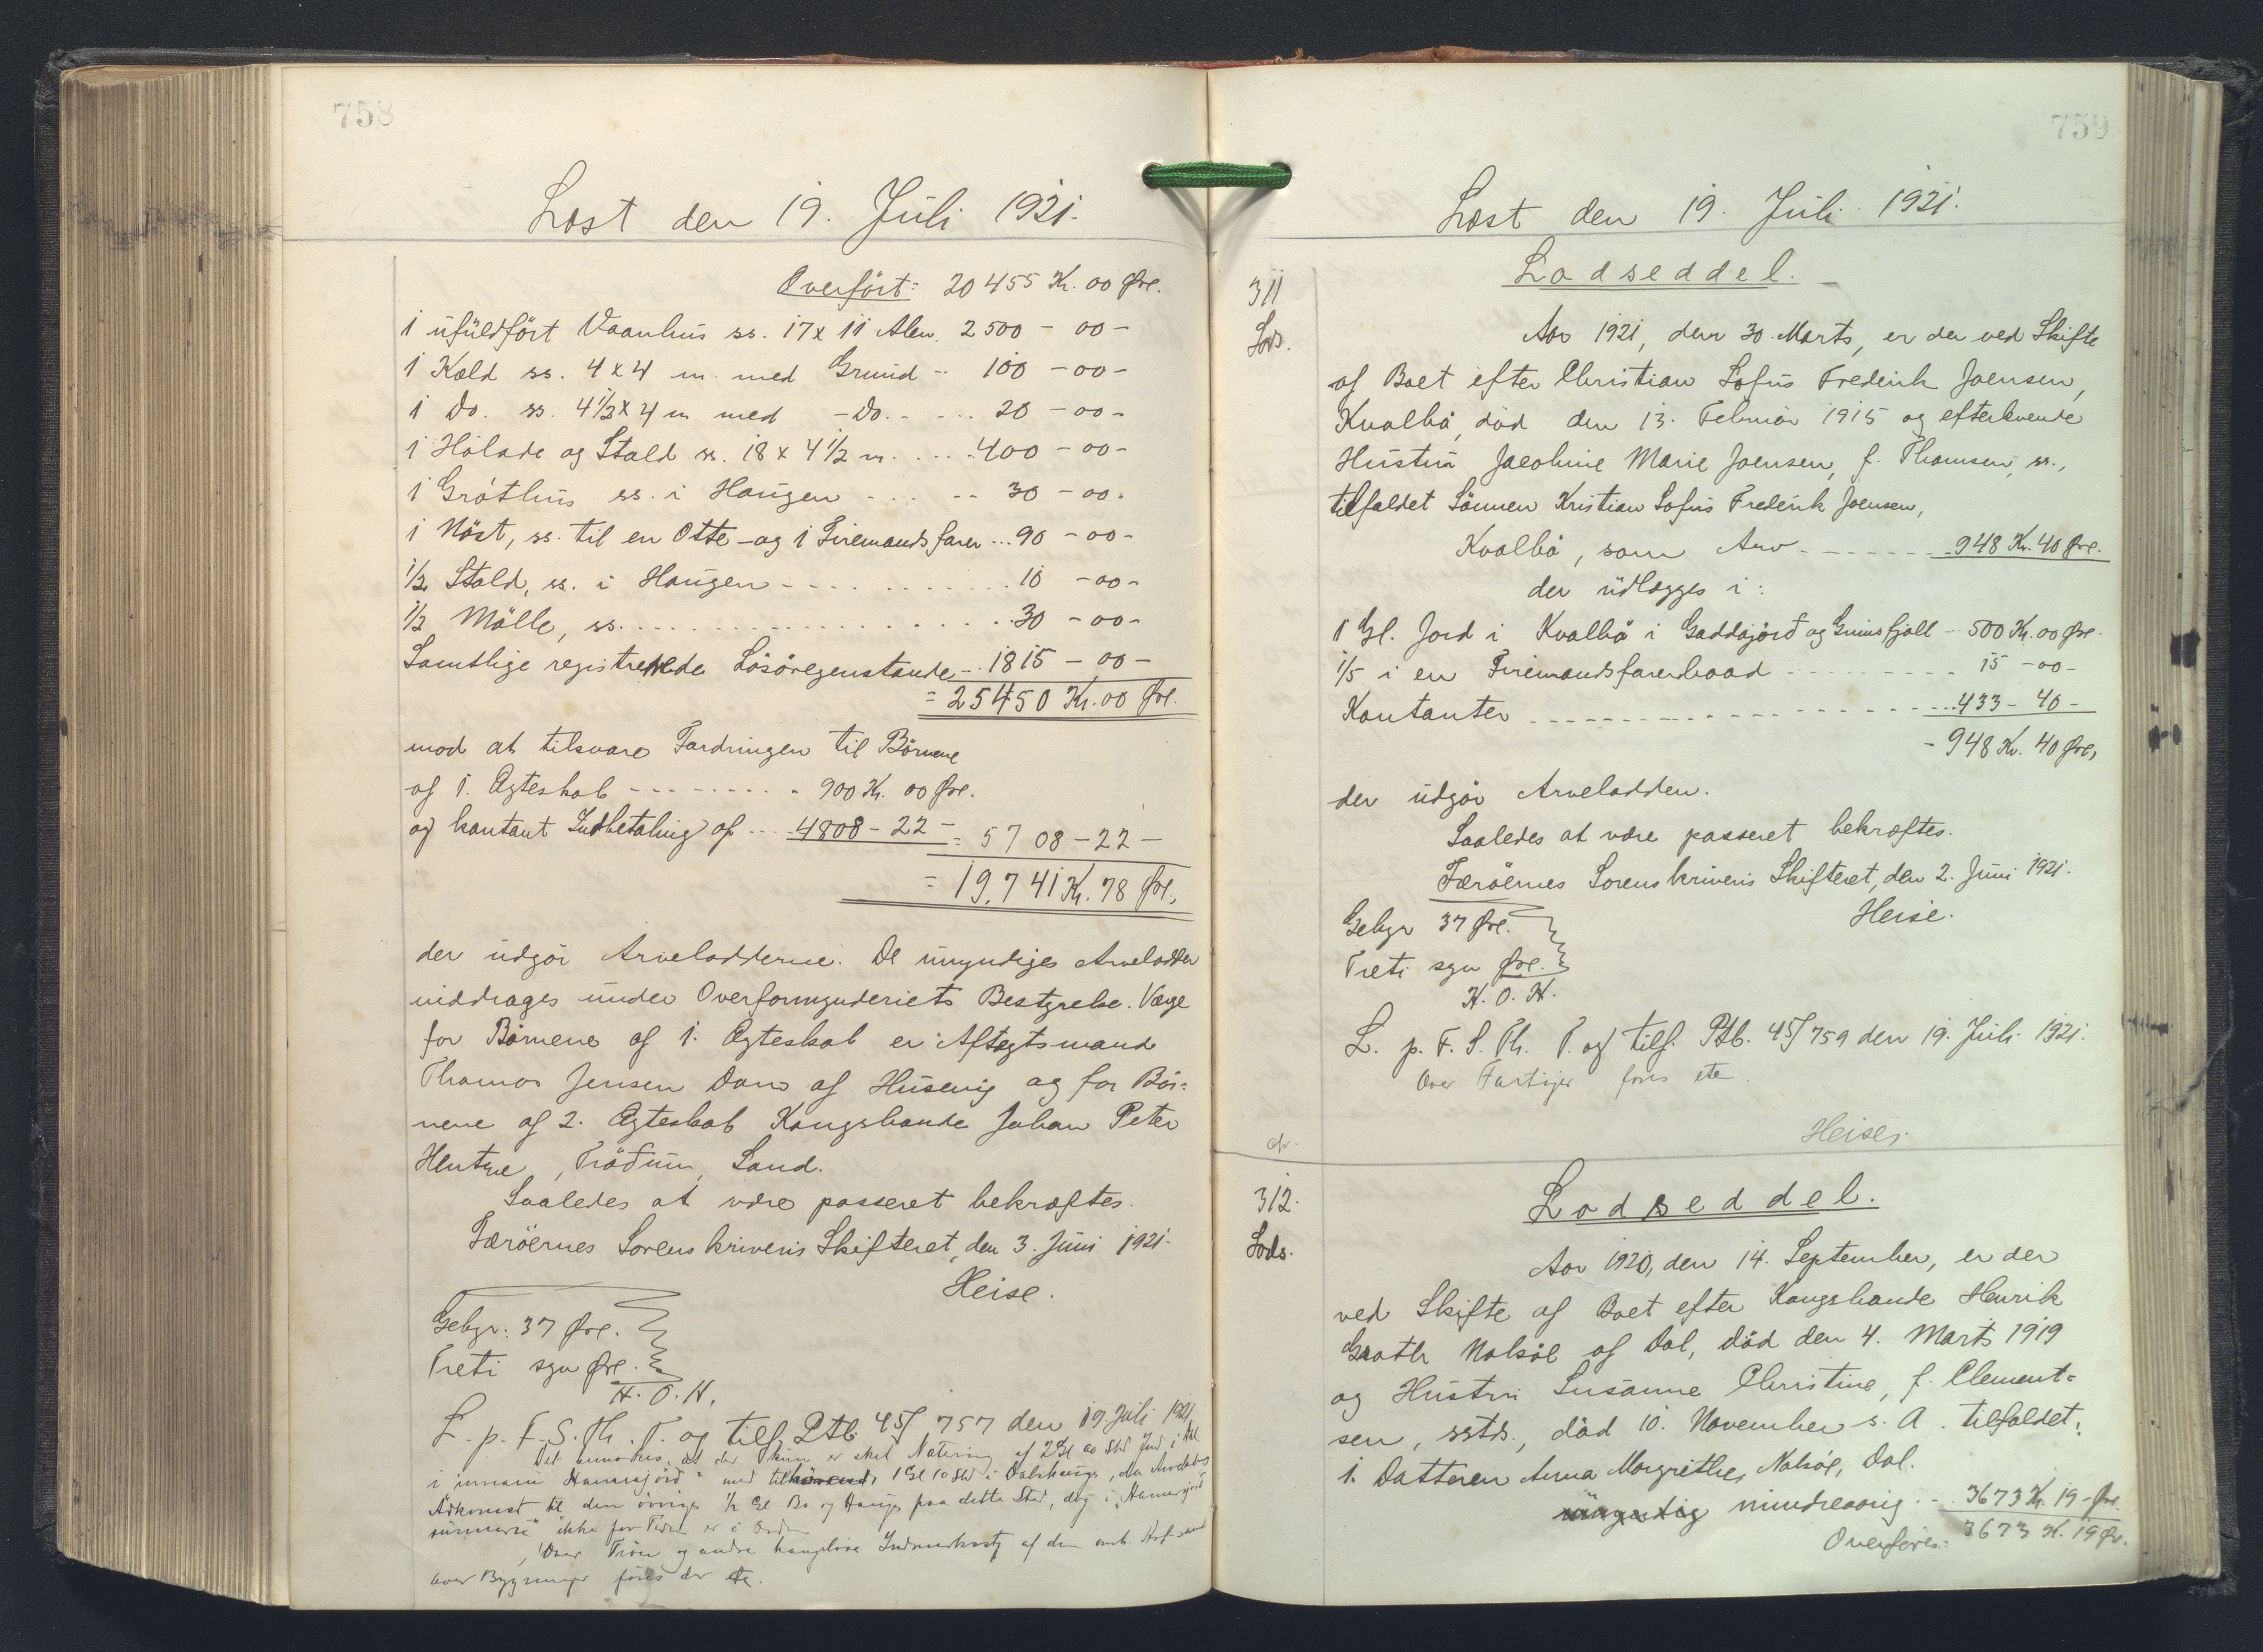 758
Læst den 19. Juli 1921.
Overført: 20455 Kr. 00 Øre.
1 ufuldført Vaanhus ss. 17 x 11 Alen. 2500 - 00 -
1 Kæld ss. 4 x 4 m. med Grund - 100 - 00 -
1 Do. ss. 4 1/2 x 4 m med - Do. - - ... 20 - 00 -
1 Hølade og Stald ss. 18 x 4 1/2 m. .... 400 - 00 -
1 Gróthus ss. i Haugen - ... -- 30 - 00 -
1 Nöst, ss. til en Otte - og 1 Firemandsfarer ... 90 - 00 -
1/2 Stald, ss. i Haugen - - - ........ 10 - 00 -
1/2 Mölle, ss. ................. 30 - 00 -
Samtlige registrerede Lösöregenstande ... 1815 - 00 -
= 25450 Kr. 00 Øre.
mod at tilsvare Fordringen til Börnene
af 1. Ægteskab - - - - - - - - 900 Kr. 00 Øre.
og kontant Indbetaling af ... 4808 - 22 - = 5708 - 22 -
= 19,741 Kr. 78 Øre,
der udgör Arvelodderne. De umyndiges Arvelodder
inddrages under Overformynderiets Bestyrelse. Værge
for Börnene af 1. Ægteskab er Aftægtsmand
Thomas Jensen Dam af Husevig og for Bör-
nene af 2. Ægteskab Kongsbonde Johan Peter
Hentze, Tröðum, Sand.
Saaledes at være passeret bekræftes.
Færöernes Sorenskriveris Skifteret, den 3. Juni 1921.
Heise.
Gebyr: 37 Øre.
Treti syv Øre.
H. O. H.
L. p. F. S. Th. T. og tilf. Ptb. 45/757 den 19 Juli 1921,
Det anmærkes, at der kun er sket Notering af 2 Gl
i innaru Hamrajörð" med tilhörende 1 Gl 10 Sk i Dalshauge, da Arveladers
Adkomst til den övrige 1/2 Gl Bø og Hauge paa dette Sted, dog i "Hamrajörð
ikke for Tiden er i Orden
Over og andre af
over Bygninger föres der ete.
759
Læst den 19. Juli 1921.
311
Lods.
Lodseddel.
Aar 1921, den 30. Marts, er der ved Skifte
af Boet efter Christian Sofus Frederik Joensen,
Kvalbø, död den 13. Februar 1915 og efterlevende
Hustru Jacobine Marie Joensen, f. Thomsen, ss.,
tilfaldet Sönnen Kristian Sofus Frederik Joensen,
Kvalbø, som Arv - - - - - - 948 Kr. 40 Øre.
der udlægges i:
1 Gl. Jord i Kvalbø i Gaddajörð og Grimsfjall - 500 Kr. 00 Øre.
1/5 i en Firemandsfarerbaad - - - - - - - - - 15 - 00 -
Kontanter - - - - - - - - - - - - - ... 433 - 40 -
- 948 Kr. 40 Øre,
der udgör Arvelodden.
Saaledes at være passeret bekræftes.
Færöernes Sorenskriveris Skifteret, den 2. Juni 1921.
Heise.
Gebyr 37 Øre.
Treti syv Øre.
H. O. H.
L. p. F. S. Th. T. og tilf. Ptb. 45/759 den 19. Juli 1921.
Over Fartöjer föres ete.
Heise.
312.
Lods.
Lodseddel.
Aar 1920, den 14. September, er der
ved Skifte af Boet efter Kongsbonde Henrik
Graath Nolsøe af Dal, död den 4. Marts 1919
og Hustru Susanne Christine, f. Clement-
sen, sstds., död 10. November s. A. tilfaldet:
1. Datteren Anna Margrethe Nolsøe, Dal.
mindreaarig ... 3673 Kr. 19 - Øre.
Overføres: 3673 K. 19 Ør.